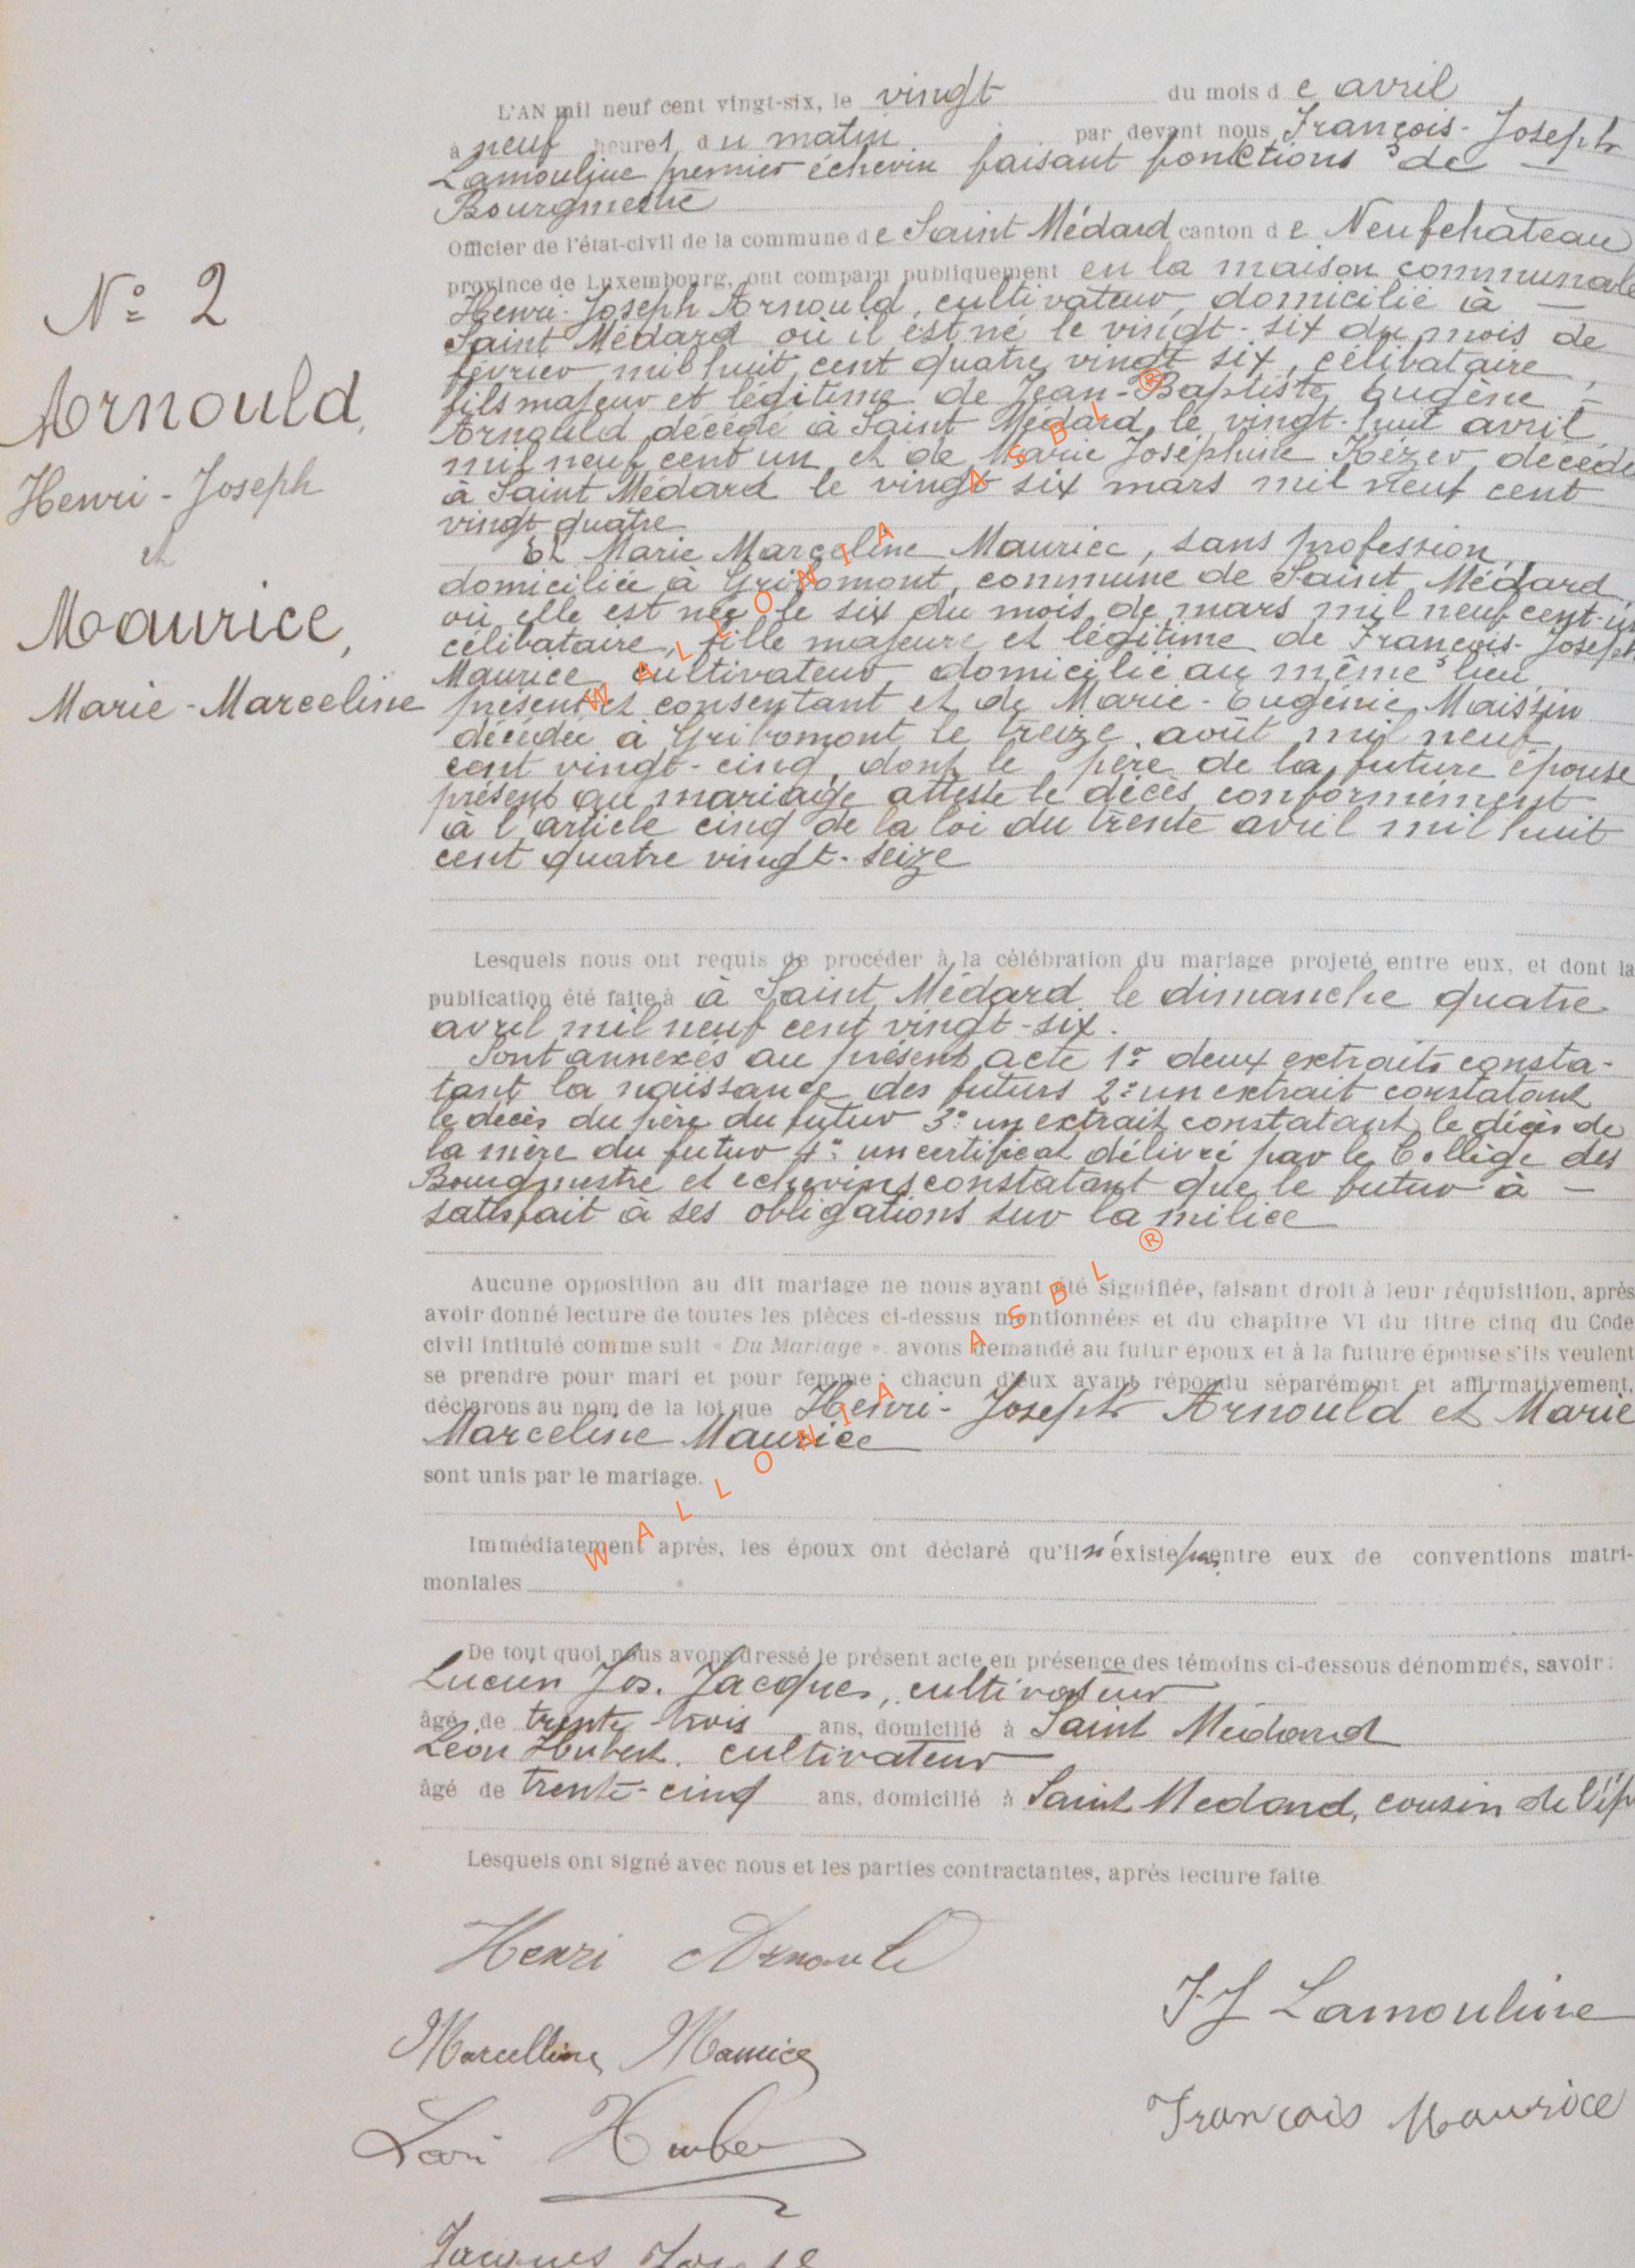 L'AN mil neuf cent vingt-six, le vingt du mois de avril
à neuf heures du matin par devant nous François-Joseph
Lamouline premier échevin faisant fonctions de
Bourgmestre
Officier de l'état-civil de la commune de Saint Médard canton de Neufchâteau
province de Luxembourg, ont comparu publiquement en la maison communale
Henri-Joseph Arnould, cultivateur, domicilié à
Saint Médard où il est né le vingt-six du mois de
février mil huit cent quatre vingt six, célibataire,
fils majeur et légitime de Jean-Baptiste Eugène
Arnould décédé à Saint Médard le vingt-huit avril
mil neuf cent un et de Marie Joséphine Kézer décédé
à Saint Médard le vingt six mars mil neuf cent
vingt quatre
Et Marie Marceline Maurice, sans profession,
domiciliée à Gribomont, commune de Saint Médard,
où elle est née le six du mois de mars mil neuf cent-un
célibataire, fille majeure et légitime de François-Joseph
Maurice cultivateur domicilié au même lieu
présent et consentant et de Marie-Eugénie Maissin
décédée à Gribomont le treize août mil neuf
cent vingt-cinq, dont le père de la future épouse
présent au mariage atteste le décès conformément
à l'article cinq de la loi du trente avril mil huit
cent quatre vingt-seize
N° 2
Arnould,
Henri-Joseph
et
Maurice,
Marie-Marceline
Lesquels nous ont requis de procéder à la célébration du mariage projeté entre eux, et dont la
publication été faite à à Saint Médard le dimanche quatre
avril mil neuf cent vingt-six.
Sont annexés au présent acte 1° deux extraits consta-
tant la naissance des futurs 2° un extrait constatant
le décès du père du futur 3° un extrait constatant le décès de
la mère du futur 4° un certificat délivré par le Collège des
Bourgmestre et echevins constatant que le futur à
satisfait à ses obligations sur la milice
Aucune opposition au dit mariage ne nous ayant été signifiée, faisant droit à leur réquisition, après
avoir donné lecture de toutes les pièces ci-dessus mentionnées et du chapitre VI du titre cinq du Code
civil intitulé comme suit « Du Mariage ». avons demandé au futur époux et à la future épouse s'ils veulent
se prendre pour mari et pour femme ; chacun d'eux ayant répondu séparément et affirmativement,
déclarons au nom de la loi que Henri-Joseph Arnould et Marie
Marceline Maurice
sont unis par le mariage.
Immédiatement après, les époux ont déclaré qu'il n'existe pas entre eux de conventions matri-
moniales
De tout quoi nous avons dressé le présent acte en présence des témoins ci-dessous dénommés, savoir :
Lucien Jos. Jacques, cultivateur
âgé de trente trois ans, domicilié à Saint Médard
Léon Hubert. cultivateur
âgé de trente-cinq ans, domicilié à Saint Medard, cousin de l'ép
Lesquels ont signé avec nous et les parties contractantes, après lecture faite
Henri Arnould
F J Lamouline
Marcelline Maurice
François Maurice
Léon Hubert
Jacques Joseph
WALLONIA ASBL ®
WALLONIA ASBL ®